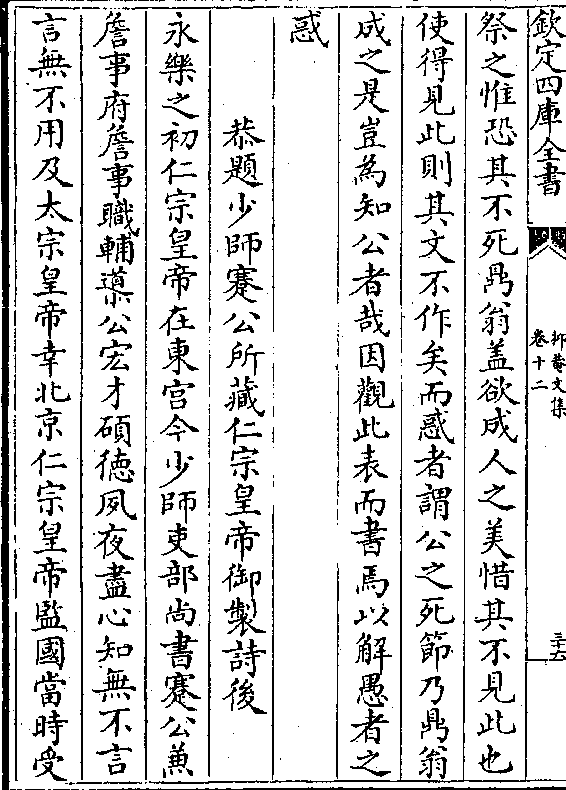 欽定四庫全書
抑菴文集
卷十二
三十六
祭之惟恐其不死鼎翁盖欲成人之美惜其不見此也
使得見此則其文不作矣而惑者謂公之死節乃鼎翁
成之是豈為知公者哉因觀此表而書焉以解愚者之
惑
恭題少師蹇公所藏仁宗皇帝御製詩後
永樂之初仁宗皇帝在東宫今少師吏部尚書蹇公兼
詹事府詹事職輔導公宏才碩徳夙夜盡心知無不言
言無不用及太宗皇帝幸北京仁宗皇帝監國當時受